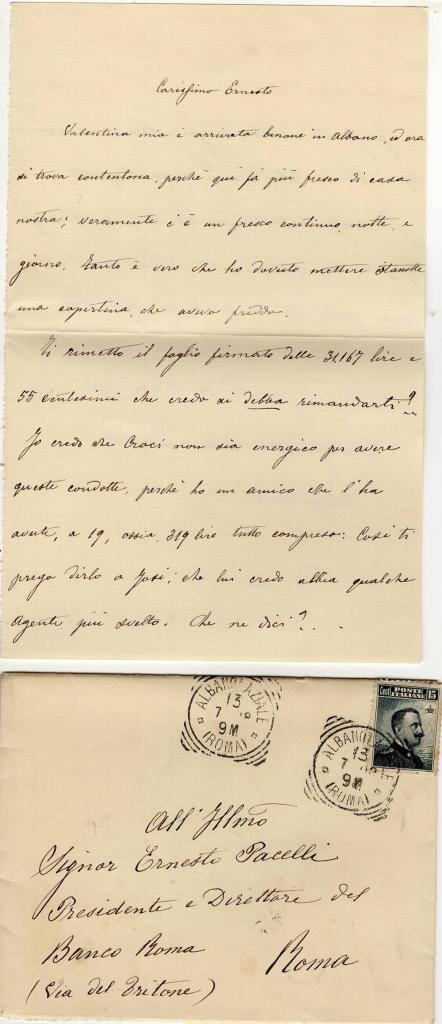 Carissimo Ernesto
Valentina mia è arrivata benone in Albano, ed ora
si trova contentona, perchè qui fa più fresco di casa
nostra; veramente c'è un fresco continuo, notte, e
giorno. Tanto è vero che ho dovuto mettere stanotte
una copertina, che aveva freddo.
Ti rimetto il foglio firmato delle 31,167 lire e
55 centesimi che credo si debba rimandarti?
Io credo che Croci non sia energico per avere
queste condotte, perchè ho un amico che l'ha
avute, a 19, ossia 319 lire tutto compreso: Così ti
prego dirlo a Josi; che lui credo abbia qualche
Agente più svelto. Che ne dici? . .
ALBANO LAZIALE
13
7
9M
(ROMA)
Cent. POSTE ITALIANE 15
ALBANO LAZIALE
13
7
9M
(ROMA)
All' Illmo
Signor Ernesto Pacelli
Presidente e Direttore del
Banco Roma
Roma
(Via del Tritone)